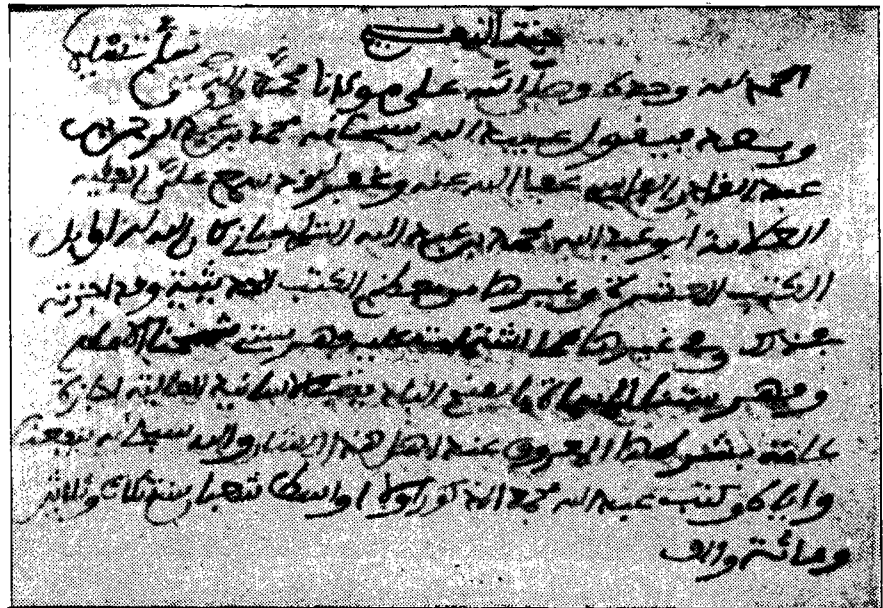 الحمد لله وحده وصلى الله على مولانا محمد وآله
وبعد فيقول عبيد الله سبحانه محمد بن عبد الرحمن بن
عبد القادر الفاسي عفا الله عنه وغفر له قد سمع علي الفقيه
العلامة أبو عبد الله محمد بن عبد الله كان الله له أوايل
الكتب العشرة وغيرها من بعض الكتب الحديثية وقد أجزته
بذلك وبغيرها مما اشتملت عليه فهرسة شيخنا الإمام
وفهرستنا المسماة بالأسانيد العالية إجازة
عامة بشرطها المعروف عند أهل هذا الشأن والله سبحانه ينفعنا
وإياه وكتب عبد الله محمد المذكور أواسط شعبان سنة ثلاث وثلاثين
ومائة وألف